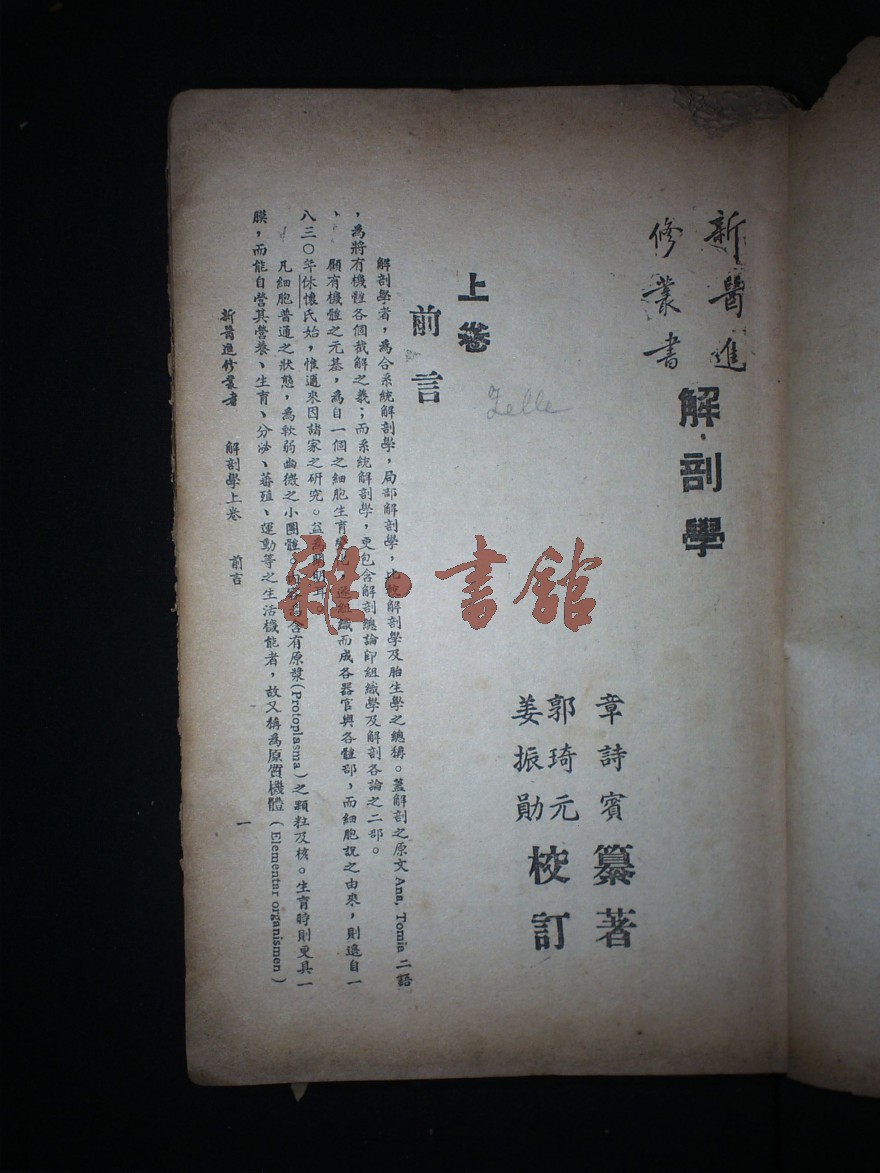 新醫進
修叢書
解剖學
章詩賓 纂著
郭琦元
姜振勛
校訂
Zelle
上卷
前言
解剖學者，為合系統解剖學，局部解剖學，比較解剖學及胎生學之總稱。蓋解剖之原文Ana, Tomia二語
，為將有機體各個截解之義；而系統解剖學，更包含解剖總論即組織學及解剖各論之二部。
顧有機體之元基，為自一個之細胞生育 而成各器官與各體部，而細胞說之由來，則遠自一
八三〇年休懷氏始，惟邇來因諸家之研究。益為
凡細胞普通之狀態，為軟弱幽微之小團體。內容 含有原漿(Protoplasma)之顆粒及核。生育時則更具一
膜，而能自營其營養、生育、分泌、蕃殖、運動等之生活機能者，故又稱為原質機體(Elementar organismen)
新醫進修叢書 解剖學上卷 前言
一
雜·書館